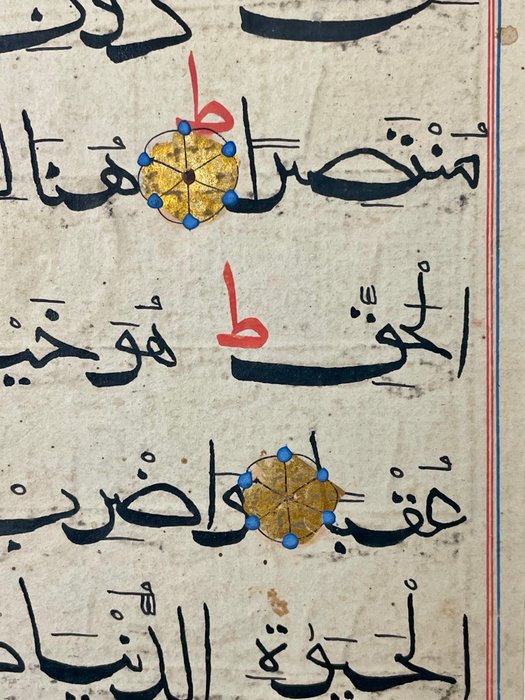 دُونِ
مُنْتَصِرًا ط هُنَا
الْحَقِّ ط هُوَ خَيْ
عُقْبًا وَاضْرِبْ
الْحَيٰوةِ الدُّنْيَا